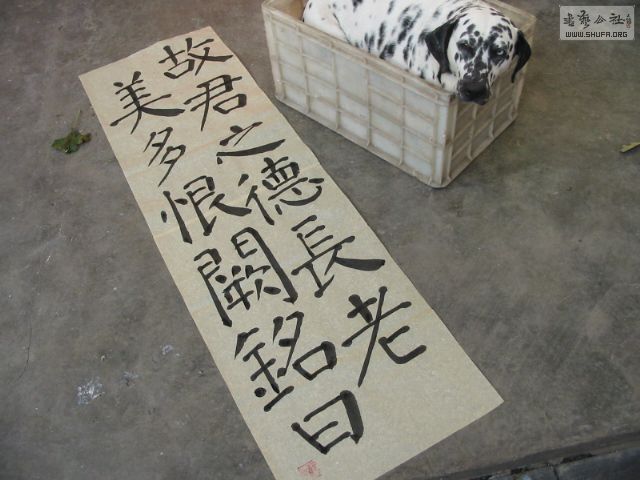 故君之德長老
美多恨闕銘曰
书艺公社
WWW.SHUFA.ORG